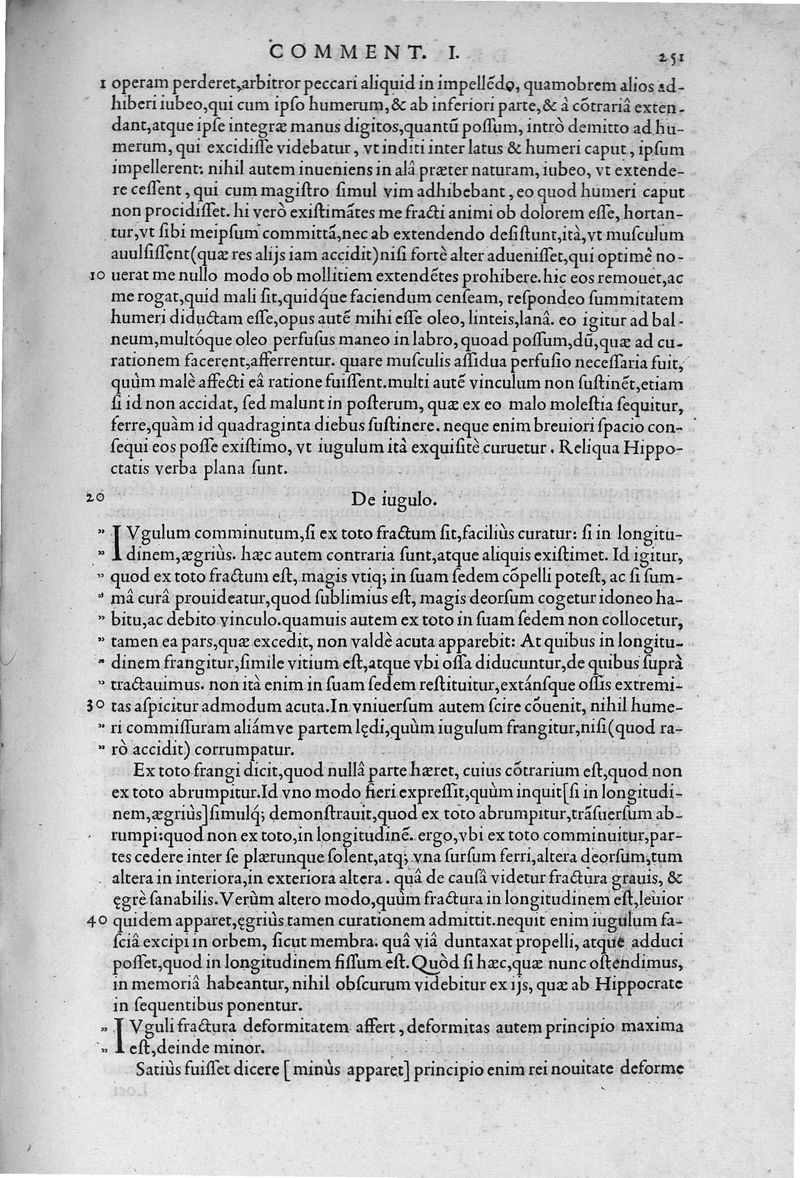 COMMENT. I. 251
1 operam perderet,arbitror peccari aliquid in impellẽdo, quamobrem alios ad-
hiberi iubeo,qui cum ipſo humerum,& ab inferiori parte,& à cõtrariâ exten-
dant,atque ipſe integræ manus digitos,quantũ poſſum, intrò demitto ad hu-
merum, qui excidiſſe videbatur, vt inditi inter latus & humeri caput, ipſum
impellerent: nihil autem inueniens in alâ præter naturam, iubeo, vt extende-
re ceſſent, qui cum magiſtro ſimul vim adhibebant, eo quod humeri caput
non procidiſſet. hi verò exiſtimãtes me fracti animi ob dolorem eſſe, hortan-
tur,vt ſibi meipſum committã,nec ab extendendo deſiſtunt,ità,vt muſculum
auulſiſſent(quæ res alijs iam accidit)niſi fortè alter adueniſſet,qui optimè no-
10 uerat me nullo modo ob mollitiem extendẽtes prohibere.hic eos remouet,ac
me rogat,quid mali ſit,quidq́ue faciendum cenſeam, reſpondeo ſummitatem
humeri diductam eſſe,opus autẽ mihi eſſe oleo, linteis,lanâ. eo igitur ad bal-
neum,multóque oleo perfuſus maneo in labro, quoad poſſum,dũ,quæ ad cu-
rationem facerent,afferrentur. quare muſculis aſſidua perfuſio neceſſaria fuit,
quùm malè affecti eâ ratione fuiſſent.multi autẽ vinculum non ſuſtinẽt,etiam
ſi id non accidat, ſed malunt in poſterum, quæ ex eo malo moleſtia ſequitur,
ferre,quàm id quadraginta diebus ſuſtinere. neque enim breuiori ſpacio con-
ſequi eos poſſe exiſtimo, vt iugulum ità exquiſitè curuetur. Reliqua Hippo-
ctatis verba plana ſunt.
20 De iugulo.
" IVgulum comminutum,ſi ex toto fractum ſit,faciliùs curatur: ſi in longitu-
" dinem,ægriùs. hæc autem contraria ſunt,atque aliquis exiſtimet. Id igitur,
" quod ex toto fractum eſt, magis vtiq; in ſuam ſedem cõpelli poteſt, ac ſi ſum-
" mâ curâ prouideatur,quod ſublimius eſt, magis deorſum cogetur idoneo ha-
" bitu,ac debito vinculo.quamuis autem ex toto in ſuam ſedem non collocetur,
" tamen ea pars,quæ excedit, non valdè acuta apparebit: At quibus in longitu-
" dinem frangitur,ſimile vitium eſt,atque vbi oſſa diducuntur,de quibus ſuprà
" tractauimus. non ità enim in ſuam ſedem reſtituitur,extánſque oſſis extremi-
30 tas aſpicitur admodum acuta.In vniuerſum autem ſcire cõuenit, nihil hume-
" ri commiſſuram aliámve partem lędi,quùm iugulum frangitur,niſi(quod ra-
" rò accidit) corrumpatur.
Ex toto frangi dicit,quod nullâ parte hæret, cuius cõtrarium eſt,quod non
ex toto abrumpitur.Id vno modo fieri expreſſit,quùm inquit[ſi in longitudi-
nem,ægriùs]ſimulq́; demonſtrauit,quod ex toto abrumpitur,trãſuerſum ab-
rumpi:quod non ex toto,in longitudinẽ. ergo,vbi ex toto comminuitur,par-
tes cedere inter ſe plærunque ſolent,atq; vna ſurſum ferri,altera deorſum,tum
altera in interiora,in exteriora altera. quâ de cauſâ videtur fractura grauis, &
ęgrè ſanabilis.Verùm altero modo,quùm fractura in longitudinem eſt,leuior
40 quidem apparet,ęgriùs tamen curationem admittit.nequit enim iugulum fa-
ſciâ excipi in orbem, ſicut membra. quâ viâ duntaxat propelli, atque adduci
poſſet,quod in longitudinem fiſſum eſt.Quòd ſi hæc,quæ nunc oſtendimus,
in memoriâ habeantur,nihil obſcurum videbitur ex ijs, quæ ab Hippocrate
in ſequentibus ponentur.
" IVguli fractura deformitatem affert, deformitas autem principio maxima
" eſt,deinde minor.
Satiùs fuiſſet dicere [minùs apparet] principio enim rei nouitate deforme